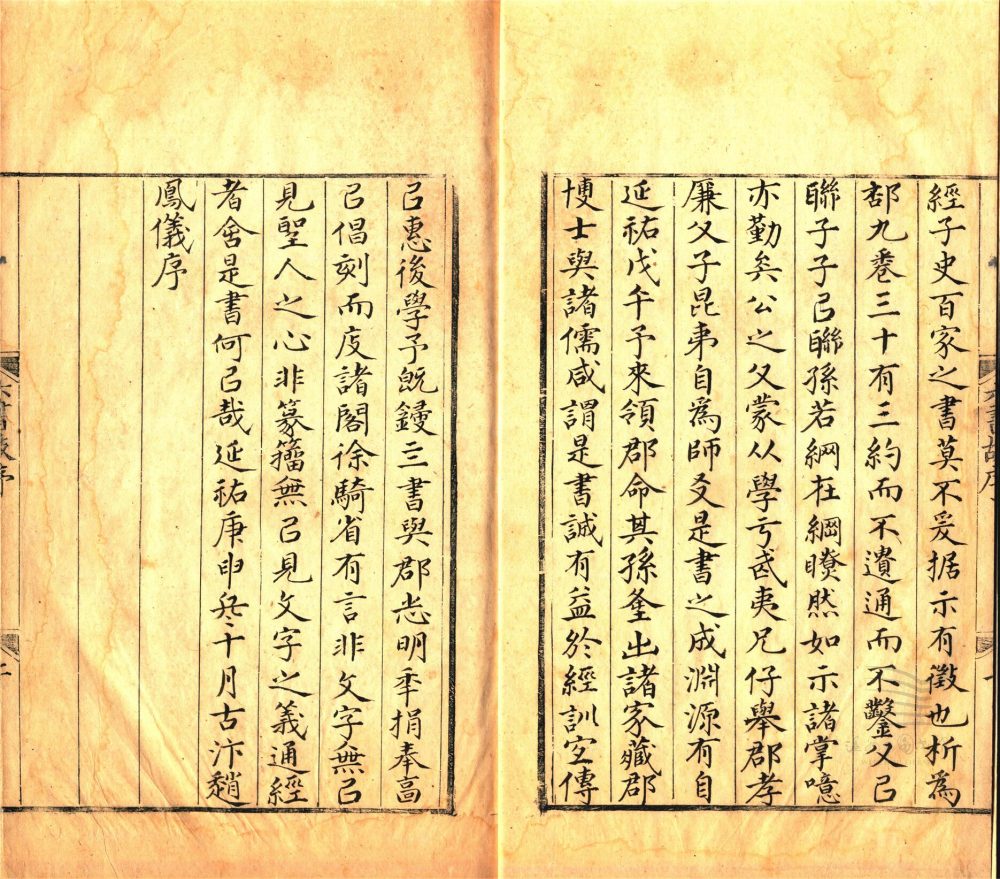 經子史百家之書莫不爰据示有徵也析為
部九卷三十有三約而不遺通而不鑿父㠯
聯子子㠯聯孫若網在綱瞭然如示諸掌噫
亦勤矣公之父蒙从學亏武夷兄仔舉郡孝
廉父子昆弟自為師友是書之成淵源有自
延祐戊午予來領郡命其孫奎出諸家藏郡
博士與諸儒咸謂是書誠有益於經訓宜傳
六書故序
㠯惠後學予旣鋟三書與郡志明秊捐奉㐭
㠯倡刻而庋諸閣徐騎省有言非文字無㠯
見聖人之心非篆籒無㠯見文字之義通經
者舍是書何㠯哉延祐庚申冬十月古汴趙
鳳儀序
六書故序 二